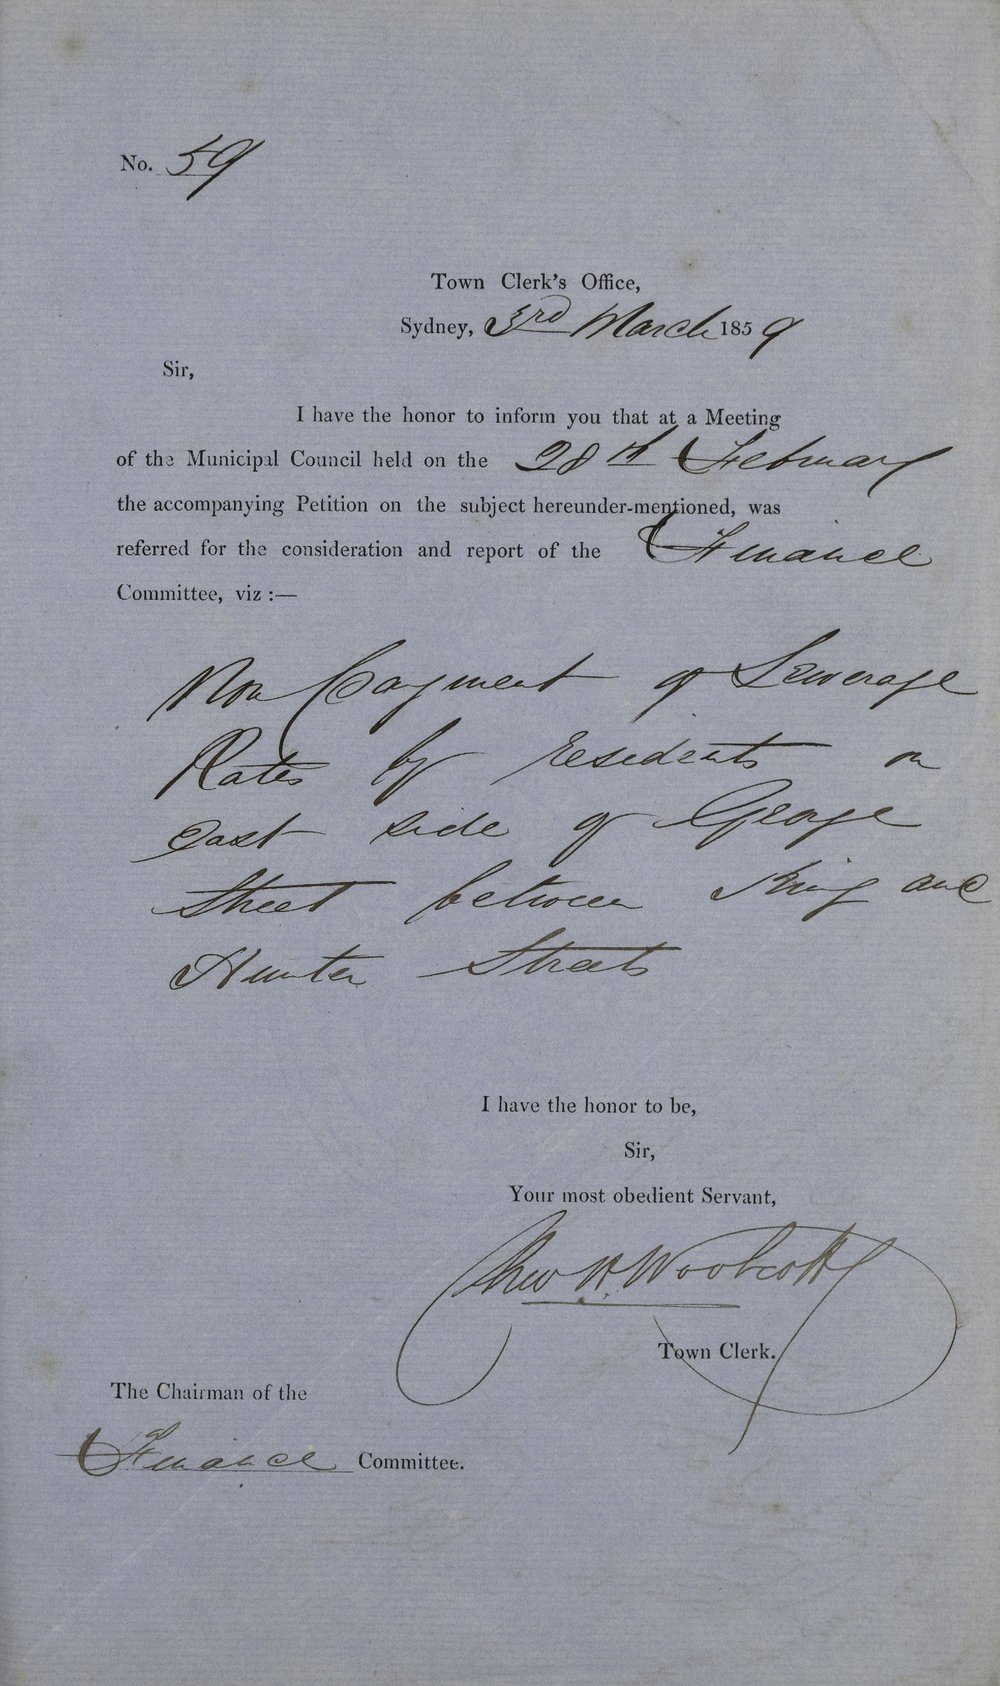 No. 59
Town Clerk's Office,
Sydney, 3rd March 1859
Sir,
I have the honor to inform you that at a Meeting
of the Municipal Council held on the 28th February
the accompanying Petition on the subject hereunder-mentioned, was
referred for the consideration and report of the Finance
Committee, viz :—
Non Payment of Sewerage
Rates by residents on
East side of George
Street between King and
Hunter Streets
I have the honor to be,
Sir,
Your most obedient Servant,
Chas H. Woolcott
Town Clerk.
The Chairman of the
Finance Committee.